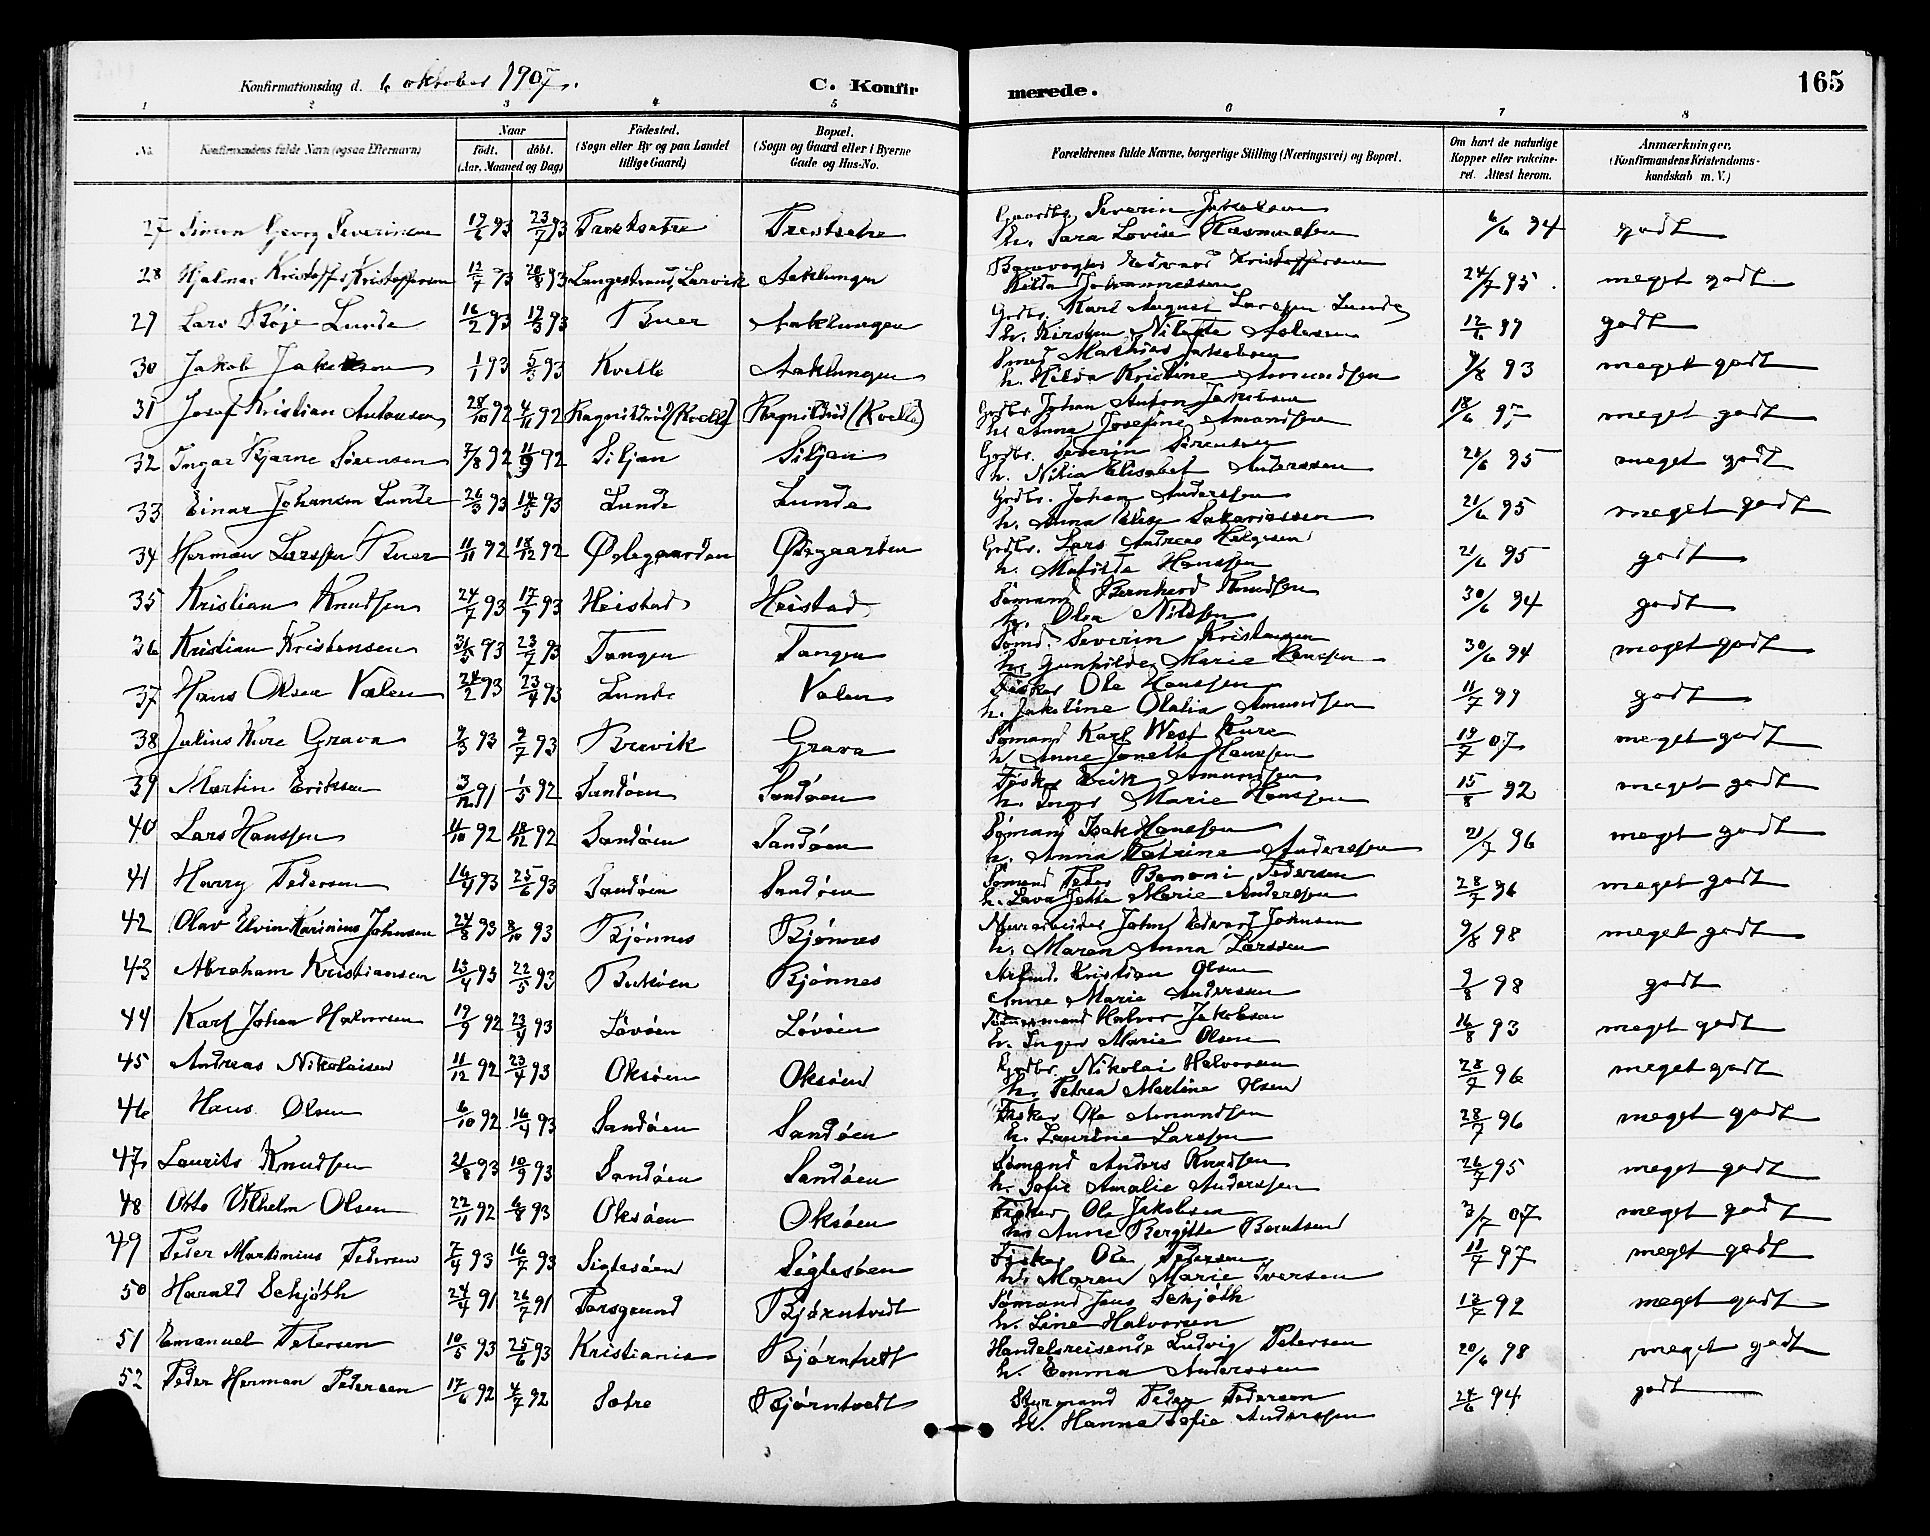 Konfirmationsdag d. 6 oktober 1907. C. Konfirmerede. 165
1 2 3 4 5 6 7 8
No. Konfirmandens fulde Navn (ogsaa Efternavn) Naar født. døbt. (Aar, Maaned og Dag) Fødested. (Sogn eller By og paa Landet tillige Gaard) Bopæl. (Sogn og Gaard eller i Byerne Gade og Hus-No. Forældrenes fulde Navne, borgerlige Stilling (Næringsvei) og Bopæl. Om havt de naturlige Kopper eller vaccineret. Attest herom. Anmærkninger. (Konfirmandens Kristendomskundskab m. V.)
27 Simon Georg Severinsen 19/6 93 23/7 93 Gaardbr. Severin Jakobsen h. Sara Lovise Rasmussen 6/6 94 godt
28 Hjalmar Kristoffer Kristoffersen 12/7 93 20/8 93 Langestrand, Larvik Aaklungen Banevogter Edvard Kristoffersen Hilda Johannessen 24/7 95 meget godt
29 Lars Bøje Lunde 16/2 93 19/3 93 Buer Aaklungen Grdbr. Karl August Larssen Lunde h. Kirsten 12/6 99 godt
30 Jakob Jakobsen 1/1 93 5/3 93 Kvelle Aaklungen Smed Mathias Jakobsen h. Hilda Kristine Amundsen 9/8 93 meget godt
31 Josef Kristian Antonsen 28/10 92 6/11 92 Ragnildrød (Kvelle) Ragnildrød (Kvelle) Grdbr. Johan Anton Jakobsen h. Anna Josefine Amundsen 18/6 97 meget godt
32 Ingar Bjarne Sørensen 7/8 92 11/9 92 Siljan Siljan Grdbr. Severin Sørensen h. Nilia Elisabet Anderssen 21/6 95 meget godt
33 Einar Johansen Lunde 26/3 93 14/5 93 Lunde Lunde Grdbr. Johan Anderssen h. Anna Elise Sakariassen 21/6 95 meget godt
34 Herman Larssen Buer 11/11 92 18/12 92 Ødegaarden Ødegaarden Grdbr. Lars Andreas Helgesen h. Matilde Hanssen 21/6 95 godt
35 Kristian Knudsen 24/7 93 17/9 93 Heistad Heistad Sømand Bernhard Knudsen h. Olea Nilssen 30/6 94 godt
36 Kristian Kristensen 31/5 93 23/7 93 Tangen Tangen Sømd. Severin Kristensen h. Gunhilde Marie Hanssen 30/6 94 meget godt
37 Hans Olsen Valen 24/2 93 23/4 93 Lunde Valen Fisker Ole Hanssen h. Jakobine Olalia Amundsen 11/7 99 godt
38 Julius Kure Grava 9/3 93 9/7 93 Brevik Grava Sømand Karl West Kure h. Anne Hanssen 19/7 07 meget godt
39 Martin Eriksen 3/12 91 1/5 92 Sandøen Sandøen Fisker Erik Amundsen h. Inger Marie Hanssen 15/8 92 meget godt
40 Lars Hanssen 11/10 92 18/12 92 Sandøen Sandøen Sømand Isak Hanssen h. Anna Katrine Anderssen 21/7 96 meget godt
41 Harry Pedersen 16/4 93 25/6 93 Sandøen Sandøen Sømand Peder Benoni Pedersen h. Marie Anderssen 28/7 96 meget godt
42 Olav Elvin Karinius Johnsen 24/8 93 8/10 93 Bjønnes Bjønnes Murarbeider John Edvart Johnsen h. Maren Anna Larssen 9/8 98 meget godt
43 Abraham Kristiansen 13/4 93 22/5 93 Bukøen Bjønnes Arbmd. Kristian Olsen Anne Marie Anderssen 9/8 98 godt
44 Karl Johan Halvorsen 19/9 92 23/4 93 Løvøen Løvøen Tømmermand Halvor Jakobsen h. Inger Marie Olsen 16/8 93 meget godt
45 Andreas Nikolaisen 11/12 92 23/4 93 Oksøen Oksøen Grdbr. Nikolai Halvorsen h. Petrea Martine Olsen 28/7 96 meget godt
46 Hans Olsen 6/10 92 16/4 93 Sandøen Sandøen Fisker Ole Amundsen h. Laurine Larssen 28/7 96 meget godt
47 Laurits Knudsen 21/8 93 10/9 93 Sandøen Sandøen Sømand Anders Knudsen h. Sofie Amalie Anderssen 26/7 95 meget godt
48 Otto Vilhelm Olsen 22/11 92 6/8 93 Oksøen Oksøen Fisker Ole Jakobsen h. Anne Bergitte Berntsen 3/7 07 meget godt
49 Peder Martinius Pedersen 7/4 93 16/7 93 Siglesøen Siglesøen Fisker Ole Pedersen h. Maren Marie Iversen 11/7 97 meget godt
50 Harald Schjøth 24/4 91 26/7 91 Porsgrund Bjørntvedt Sømand Jens Schjøth h. Line Halvorsen 12/7 92 meget godt
51 Emanuel Petersen 10/5 93 25/6 93 Kristiania Bjørntvedt Handelsreisende Ludvig Petersen h. Emma Anderssen 20/6 98 meget godt
52 Peder Herman Pedersen 17/6 92 4/7 92 Sætre Bjørntvedt Styrmand Peder Pedersen h. Hanna Sofie Anderssen 24/6 94 godt